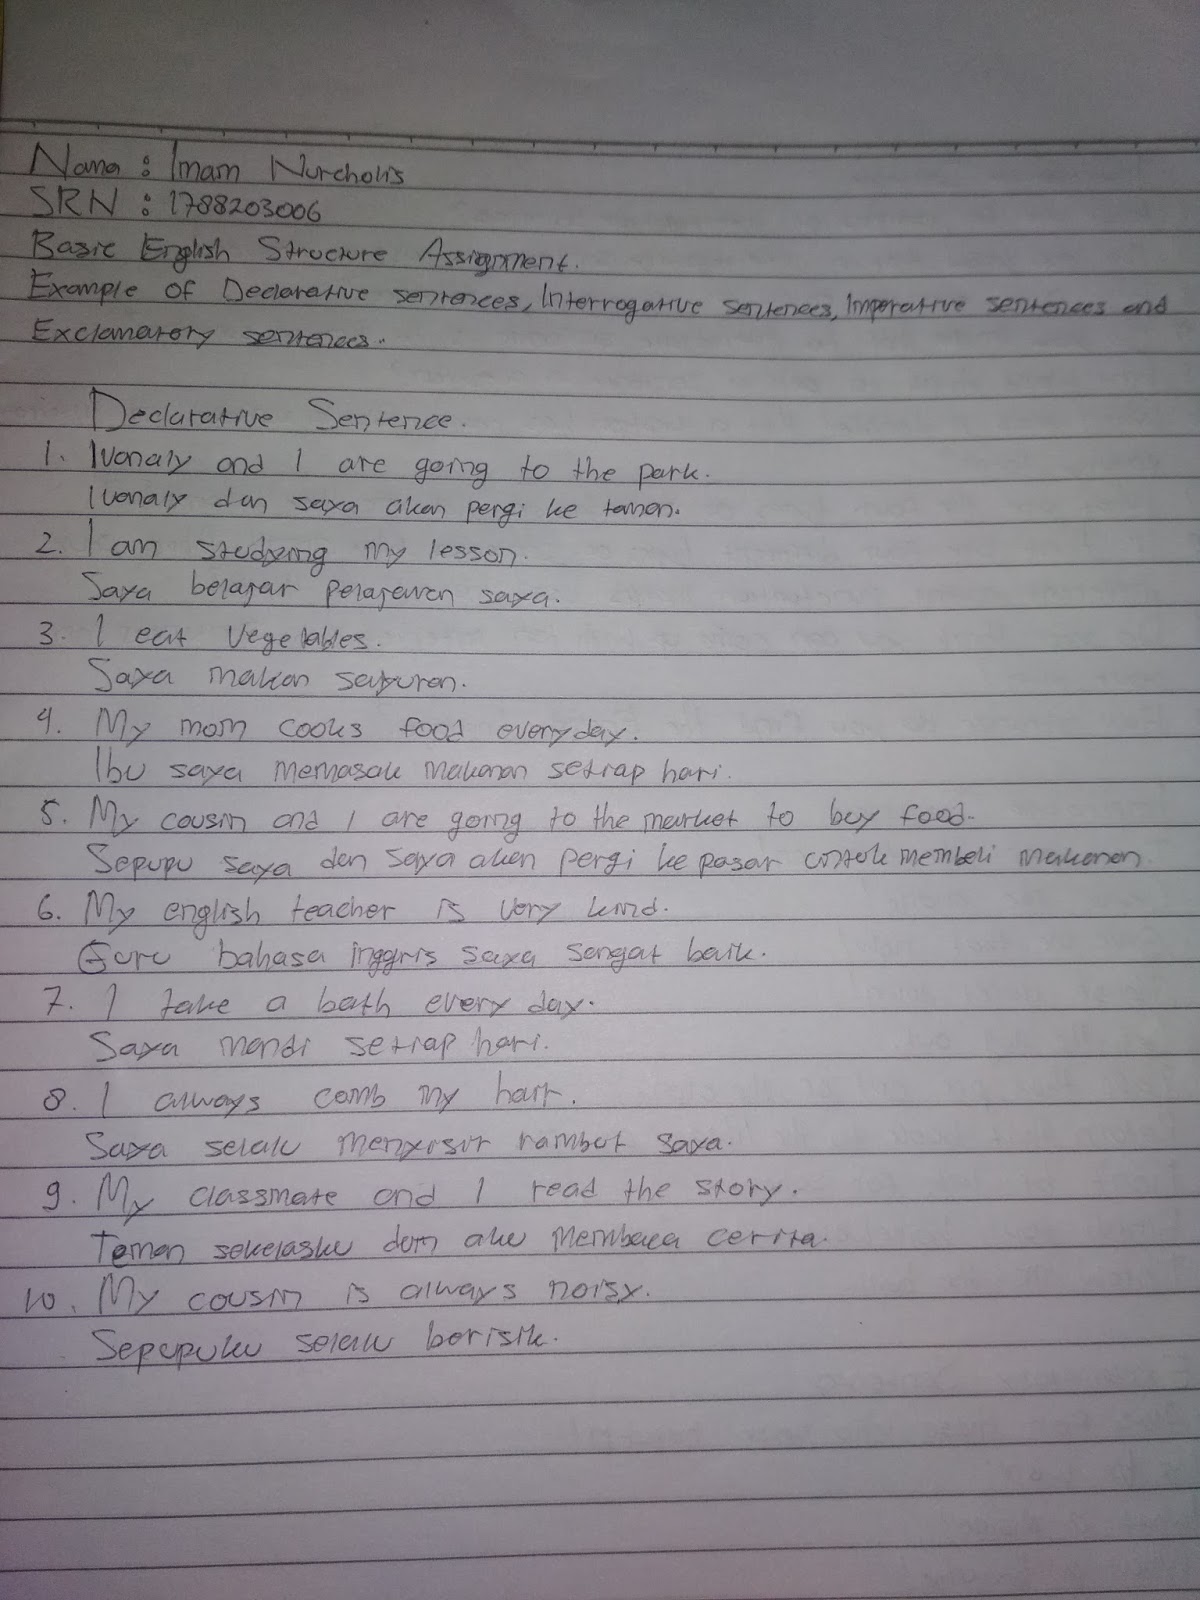 Nama : Imam Nurcholis
SRN : 1788203006
Basic English Structure Assignment.
Example of Declarative sentences, Interrogative sentences, Imperative sentences and
Exclamatory sentences.
Declarative Sentence.
1. Ivonaly and I are going to the park.
Ivonaly dan saya akan pergi ke taman.
2. I am studying my lesson.
Saya belajar pelajaran saya.
3. I eat vegetables.
Saya makan sayuran.
4. My mom cooks food everyday.
Ibu saya memasak makanan setiap hari.
5. My cousin and I are going to the market to buy food.
Sepupu saya dan saya akan pergi ke pasar untuk membeli makanan
6. My english teacher is very kind.
Guru bahasa inggris saya sangat baik.
7. I take a bath every day.
Saya mandi setiap hari.
8. I always comb my hair.
Saya selalu menyisir rambut saya.
9. My classmate and I read the story.
Teman sekelasku dan aku membaca cerita.
10. My cousin is always noisy.
Sepupuku selalu berisik.